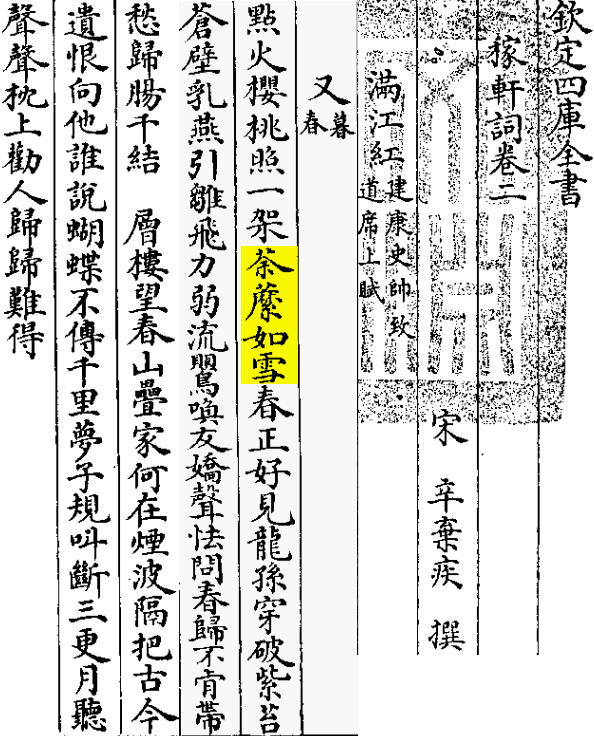 欽定四庫全書
稼軒詞卷二
宋 辛棄疾 撰
滿江紅 建康史帥致道席上賦
又 暮春
點火櫻桃照一架荼䕷如雪春正好見龍孫穿破紫苔
蒼壁乳燕引雛飛力弱流鸎喚友嬌聲怯問春歸不肯帶
愁歸腸千結 層樓望春山疊家何在煙波隔把古今
遺恨向他誰說蝴蝶不傳千里夢子規叫斷三更月聽
聲聲枕上勸人歸歸難得